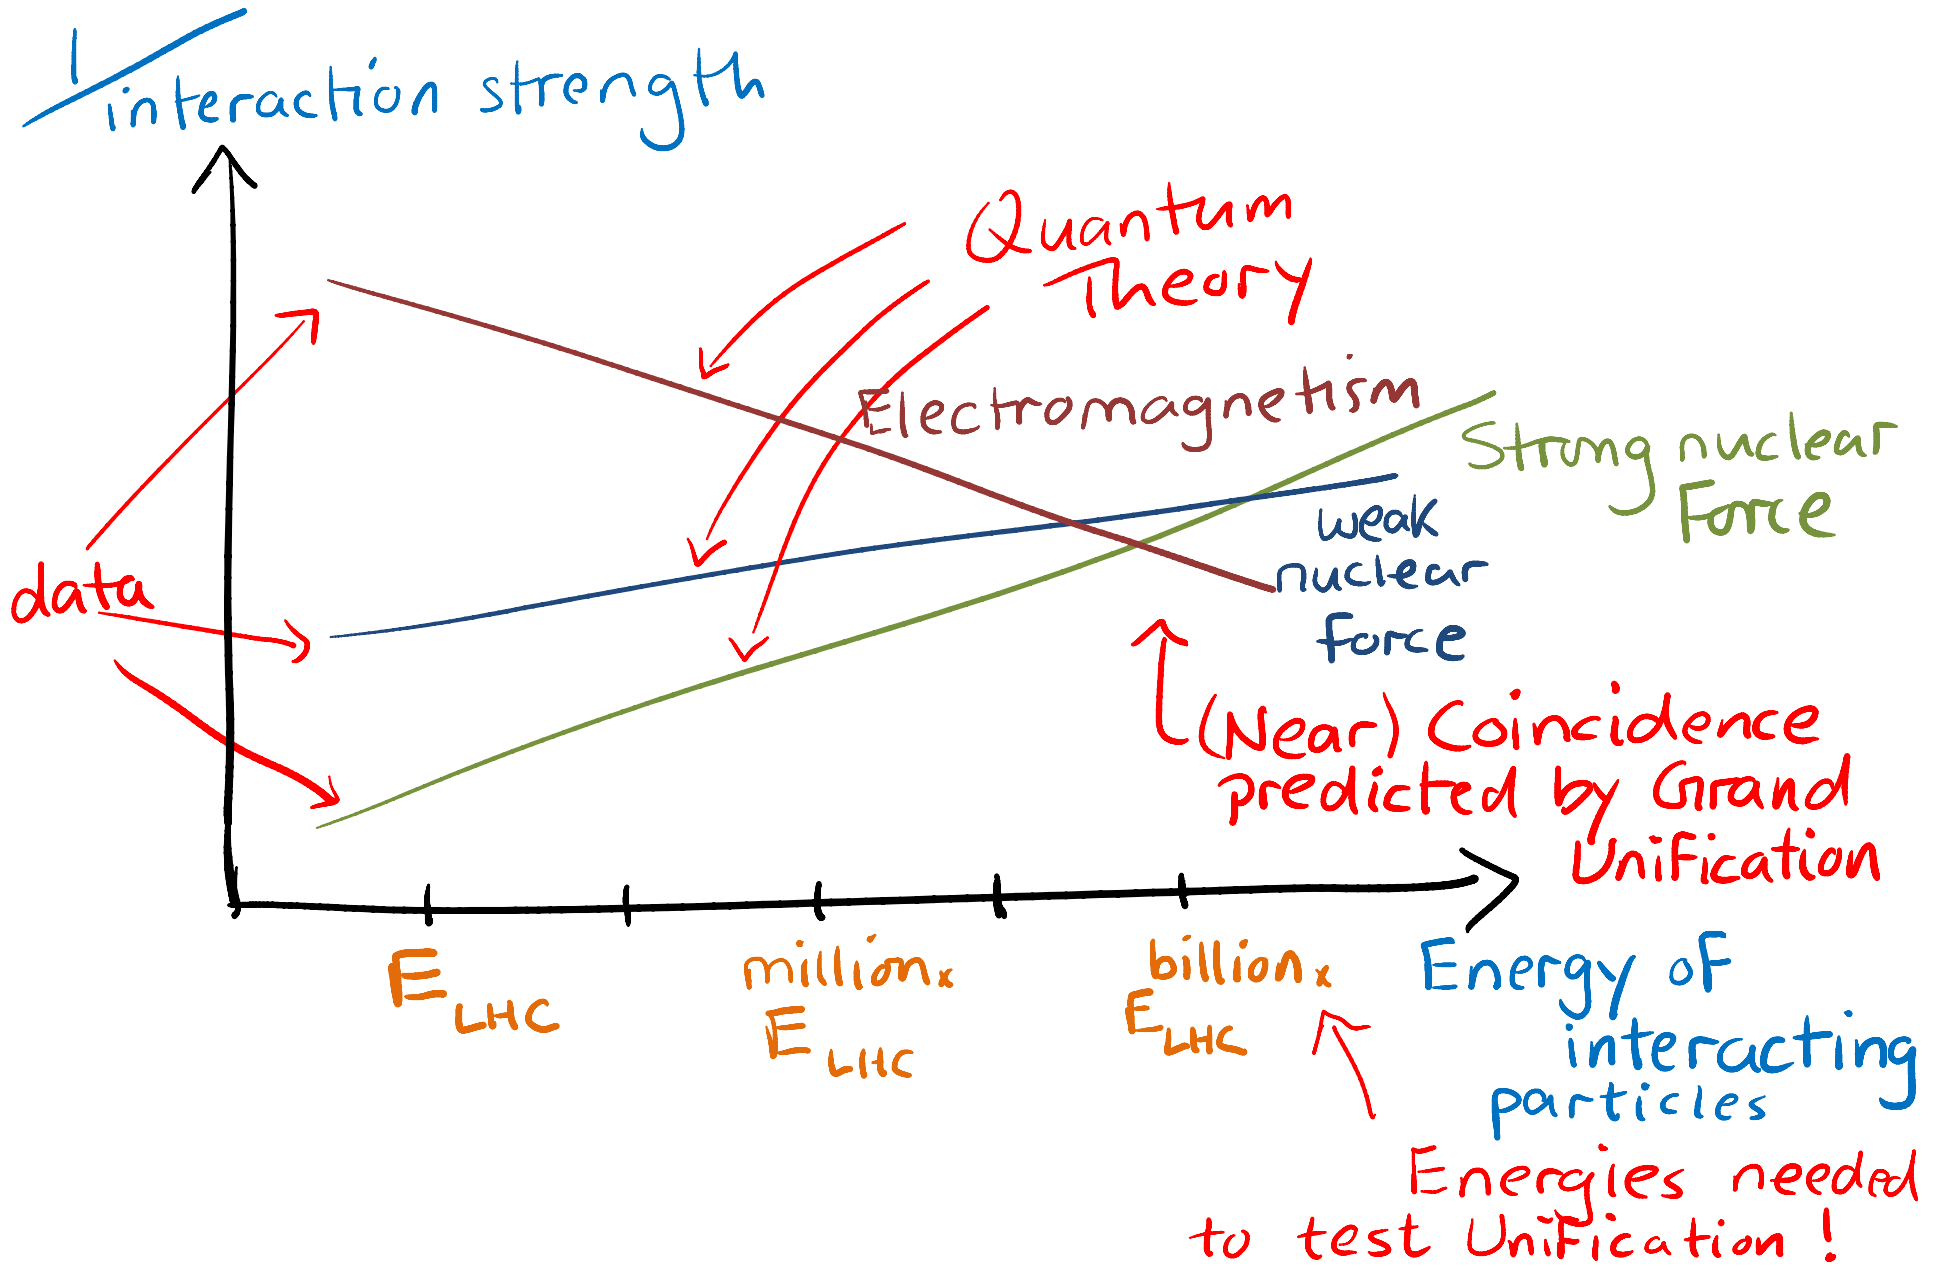 1/
interaction strength
Quantum
Theory
Electromagnetism
Strong nuclear
Force
weak
nuclear
force
data
(Near) Coincidence
predicted by Grand
Unification
E LHC
million x
E LHC
billion x
E LHC
Energy of
interacting
particles
Energies needed
to test Unification!